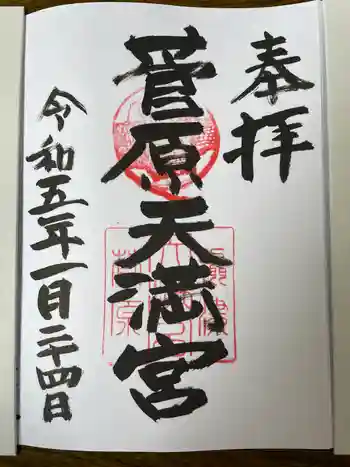 奉拝
菅原天満宮
令和五年一月二十四日